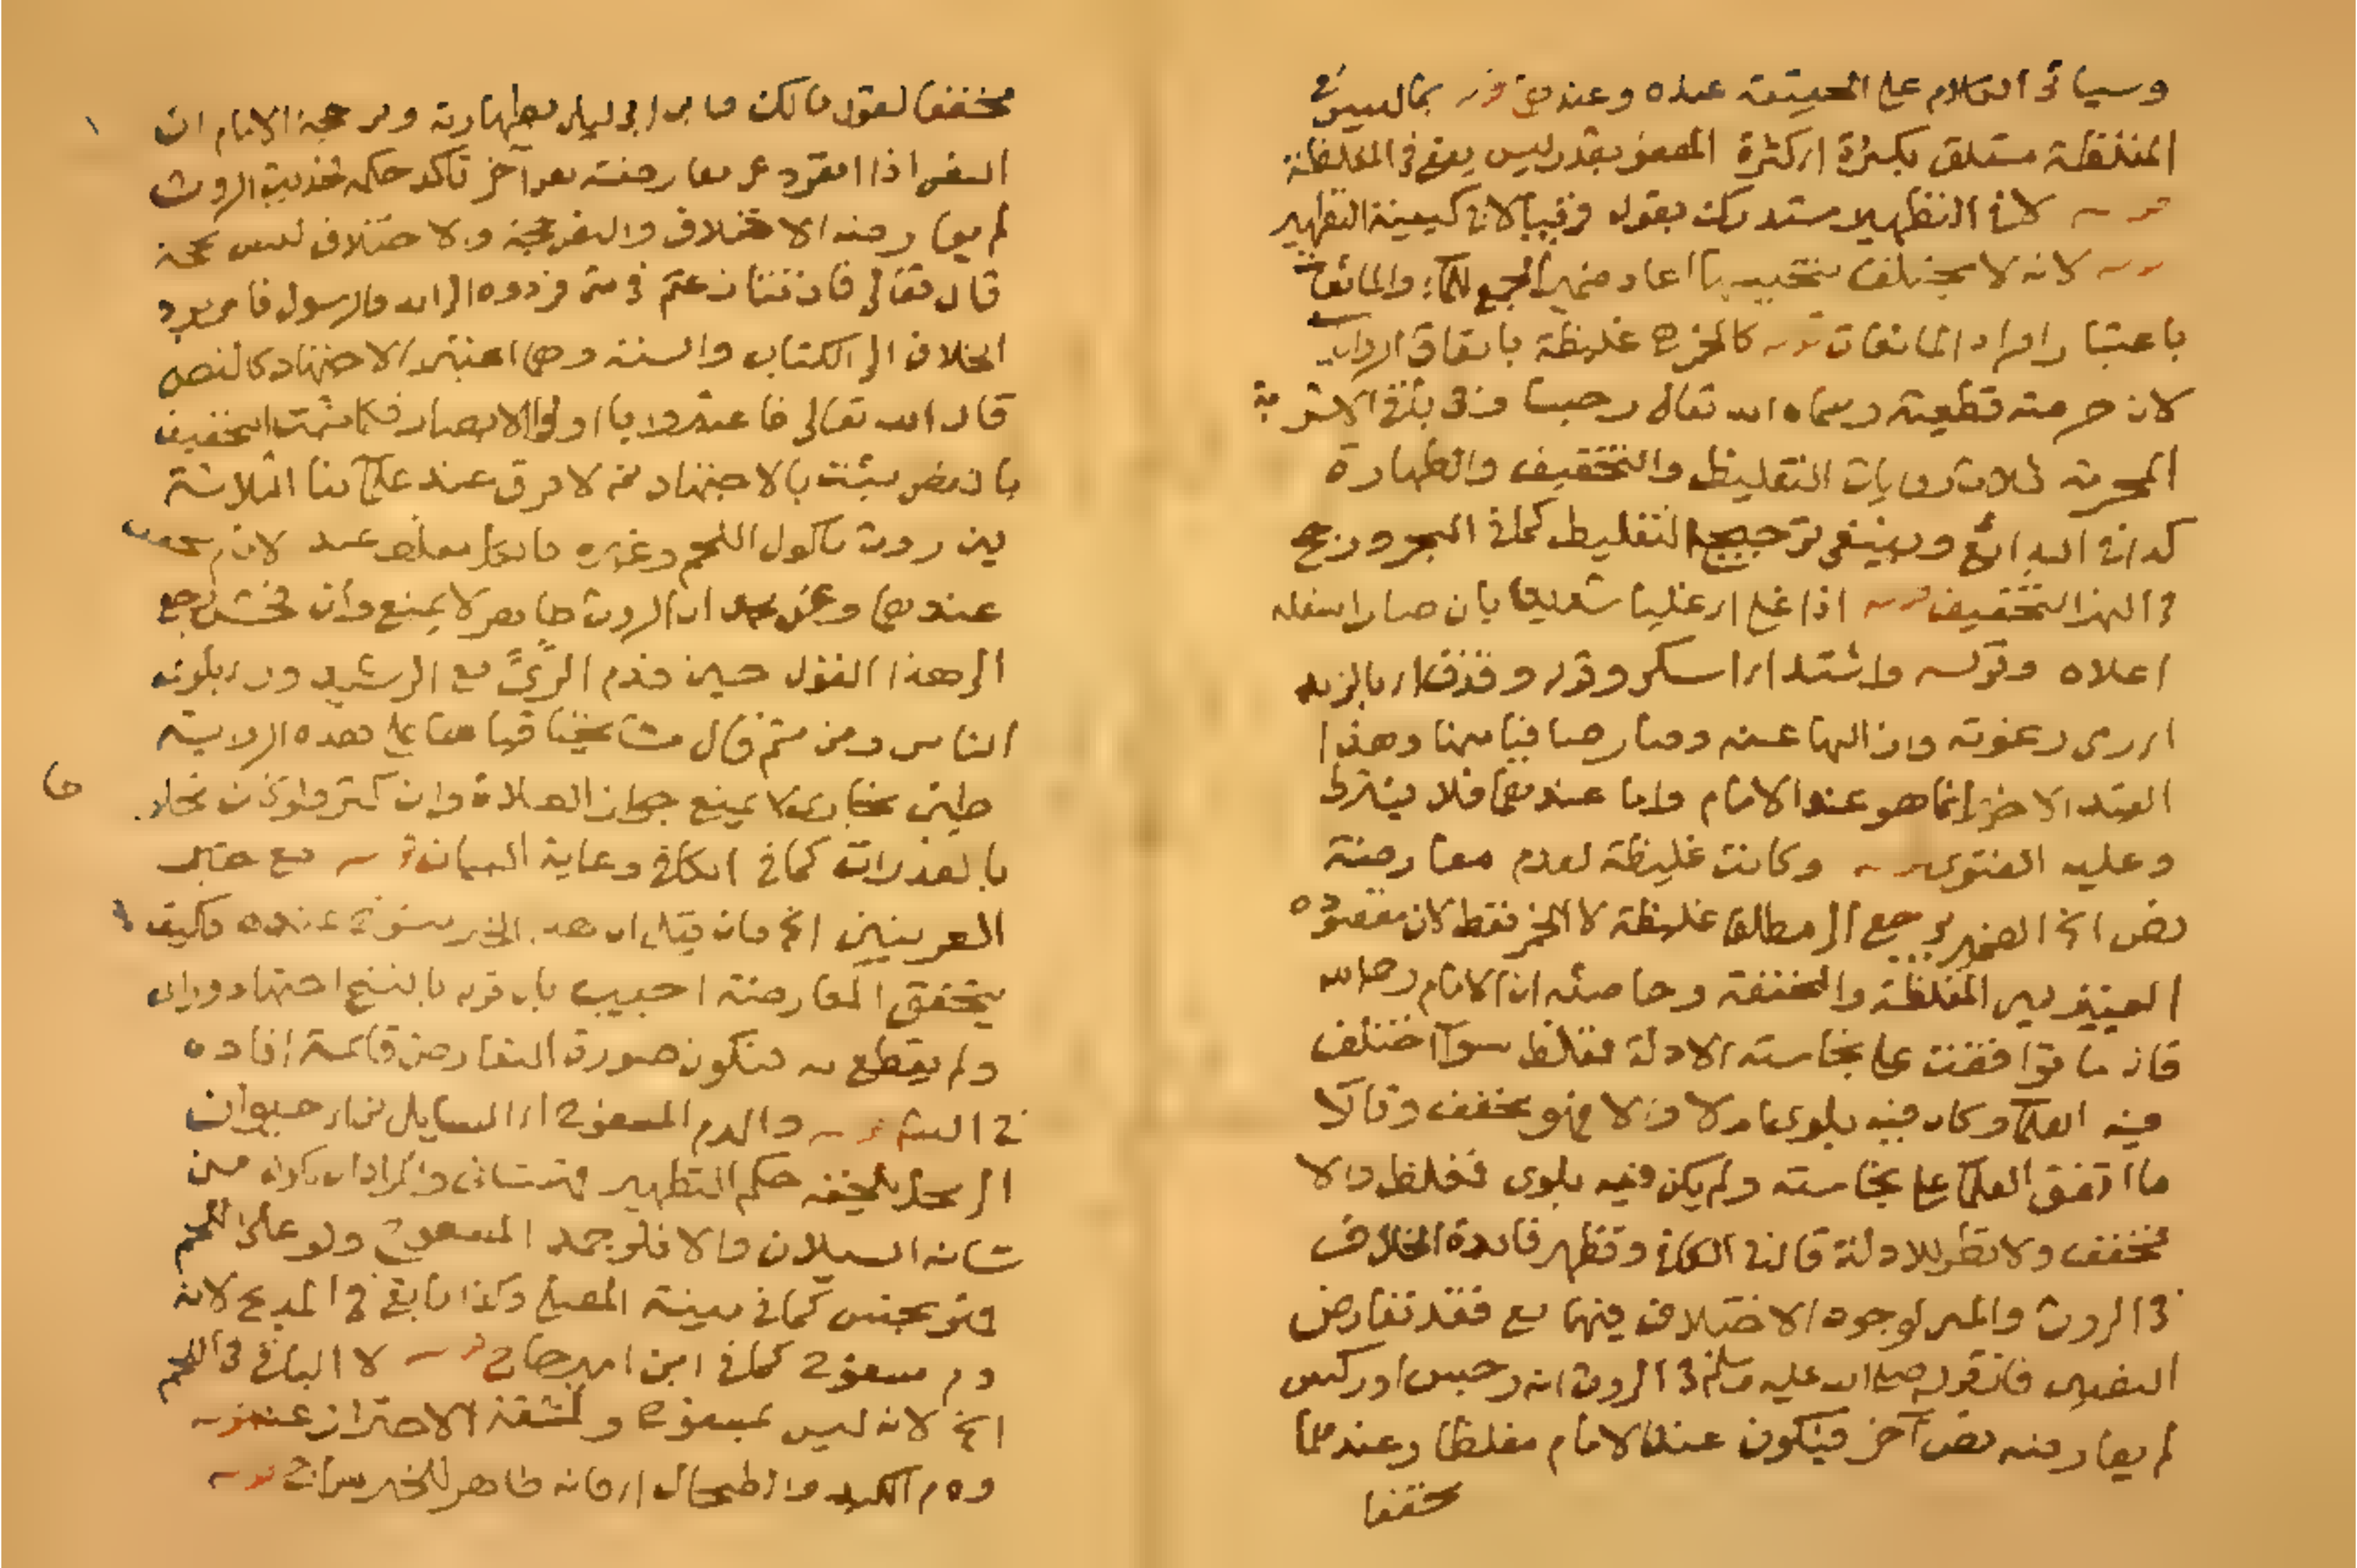 وسياتى الكلام على الحقيقة عنده وعندهما قوله بما ليس في
المغلظة متعلق بكثرة اى كثرة المعفو بقدر ليس يقع فى المغلظة
قوله لان التطهير مستدرك بقوله وقيبا لان كيفية التطهير
قوله لانه لا يختلف تنجيسها اعاد ضمير الجمع للماء والمائعات
باعتبار افراد المائعات قوله كالخمر غليظة باتفاق الروايات
لان حرمته قطعية وسماه الله تعالى رجسا وفى باقى الاشربة
المحرمة ثلاث روايات التغليظ والتخفيف والطهارة
كذا فى البدائع وينبغى ترجيح التغليظ كما فى البحر ورجح
فى النهر التخفيف قوله اذا غلى اى غليا شديدا بان صار اسفله
اعلاه وقوله واشتد اى اسكر وقوله وقذف اى بالزبد
اى رمى رغوته وازالها عنه وصار صافيا منها وهذا
القيد الاخير انما هو عند الامام واما عندهما فلا يشترط
وعليه الفتوى قوله وكانت غليظة لعدم معارضة
نص الخ الضمير يرجع الى مطلق غليظة لا الخمر فقط لان مقصوده
التمييز بين المغلظة والمخففة وحاصله ان الامام رحمه الله
قال ما توافقت على نجاسته الادلة فغلظ سواء اختلف
فيه العلماء وكان فيه بلوى ام لا والا فهو مخفف وقالا
ما اتفق العلماء على نجاسته ولم يكن فيه بلوى فغلظ والا
فخفف ولا نظر للادلة قال فى الكافى وتظهر فائدة الخلاف
فى الروث والمر لوجود الاختلاف فيهما مع فقد تعارض
النصين فان قوله صلى الله عليه وسلم فى الروث انه رجس او ركس
لم يعارضه نص آخر فيكون عند الامام مغلظا وعندهما
مخففا
مخففا لقول مالك وابن ابى ليلى بطهارته ومن حجة الامام ان
النص اذا انفرد عن معارضة نص آخر تاكد حكمه فحديث الروث
لم يعارضه الاختلاف والنص حجة والاختلاف ليس بحجة
قال تعالى فان تنازعتم فى شئ فردوه الى الله والرسول فامر برد
الخلاف الى الكتاب والسنة وهما اعتبرا الاجتهاد كالنص
قال الله تعالى فاعتبروا يا اولى الابصار فكما يثبت التخفيف
بالنص يثبت بالاجتهاد ثم لا فرق عند علمائنا الثلاثة
بين روث ماكول اللحم وغيره فالكل مغلظ عنده لا
عندهما وعن محمد ان الروث طاهر لا يمنع وان فحش رجع
الى هذا القول حين قدم الرى مع الرشيد وراى بلوى
الناس ومن ثم قال مشايخنا قياسا على هذه الرواية
طين بخارى لا يمنع جواز الصلاة وان كثر ولو كان مخلوطا
بالعذرات كما فى الكافى وغاية البيان قوله مع خبر
العرنيين الخ فان قيل ان هذا الخبر منسوخ عنده فكيف
يتحقق المعارضة اجيب بان قوله بالنسخ اجتهاد وراى
ولم يقطع به فتكون صورة التعارض قائمة افاده
فى الشرح قوله والدم المسفوح اى السايل من اى حيوان
الى محل يلحقه حكم التطهير والمراد ان يكون من
شانه السيلان والا فلو جمد المسفوح ولو على اللحم
فهو نجس كما فى منية المصلى وكذا ما بقى فى المذبح لانه
دم مسفوح كما فى ابن امير حاج قوله لا الباقى فى اللحم
الخ لانه ليس بمسفوح ولمشقة الاحتراز عنه قوله
ودم الكبد والطحال اى فانه طاهر للخبر سراج قوله